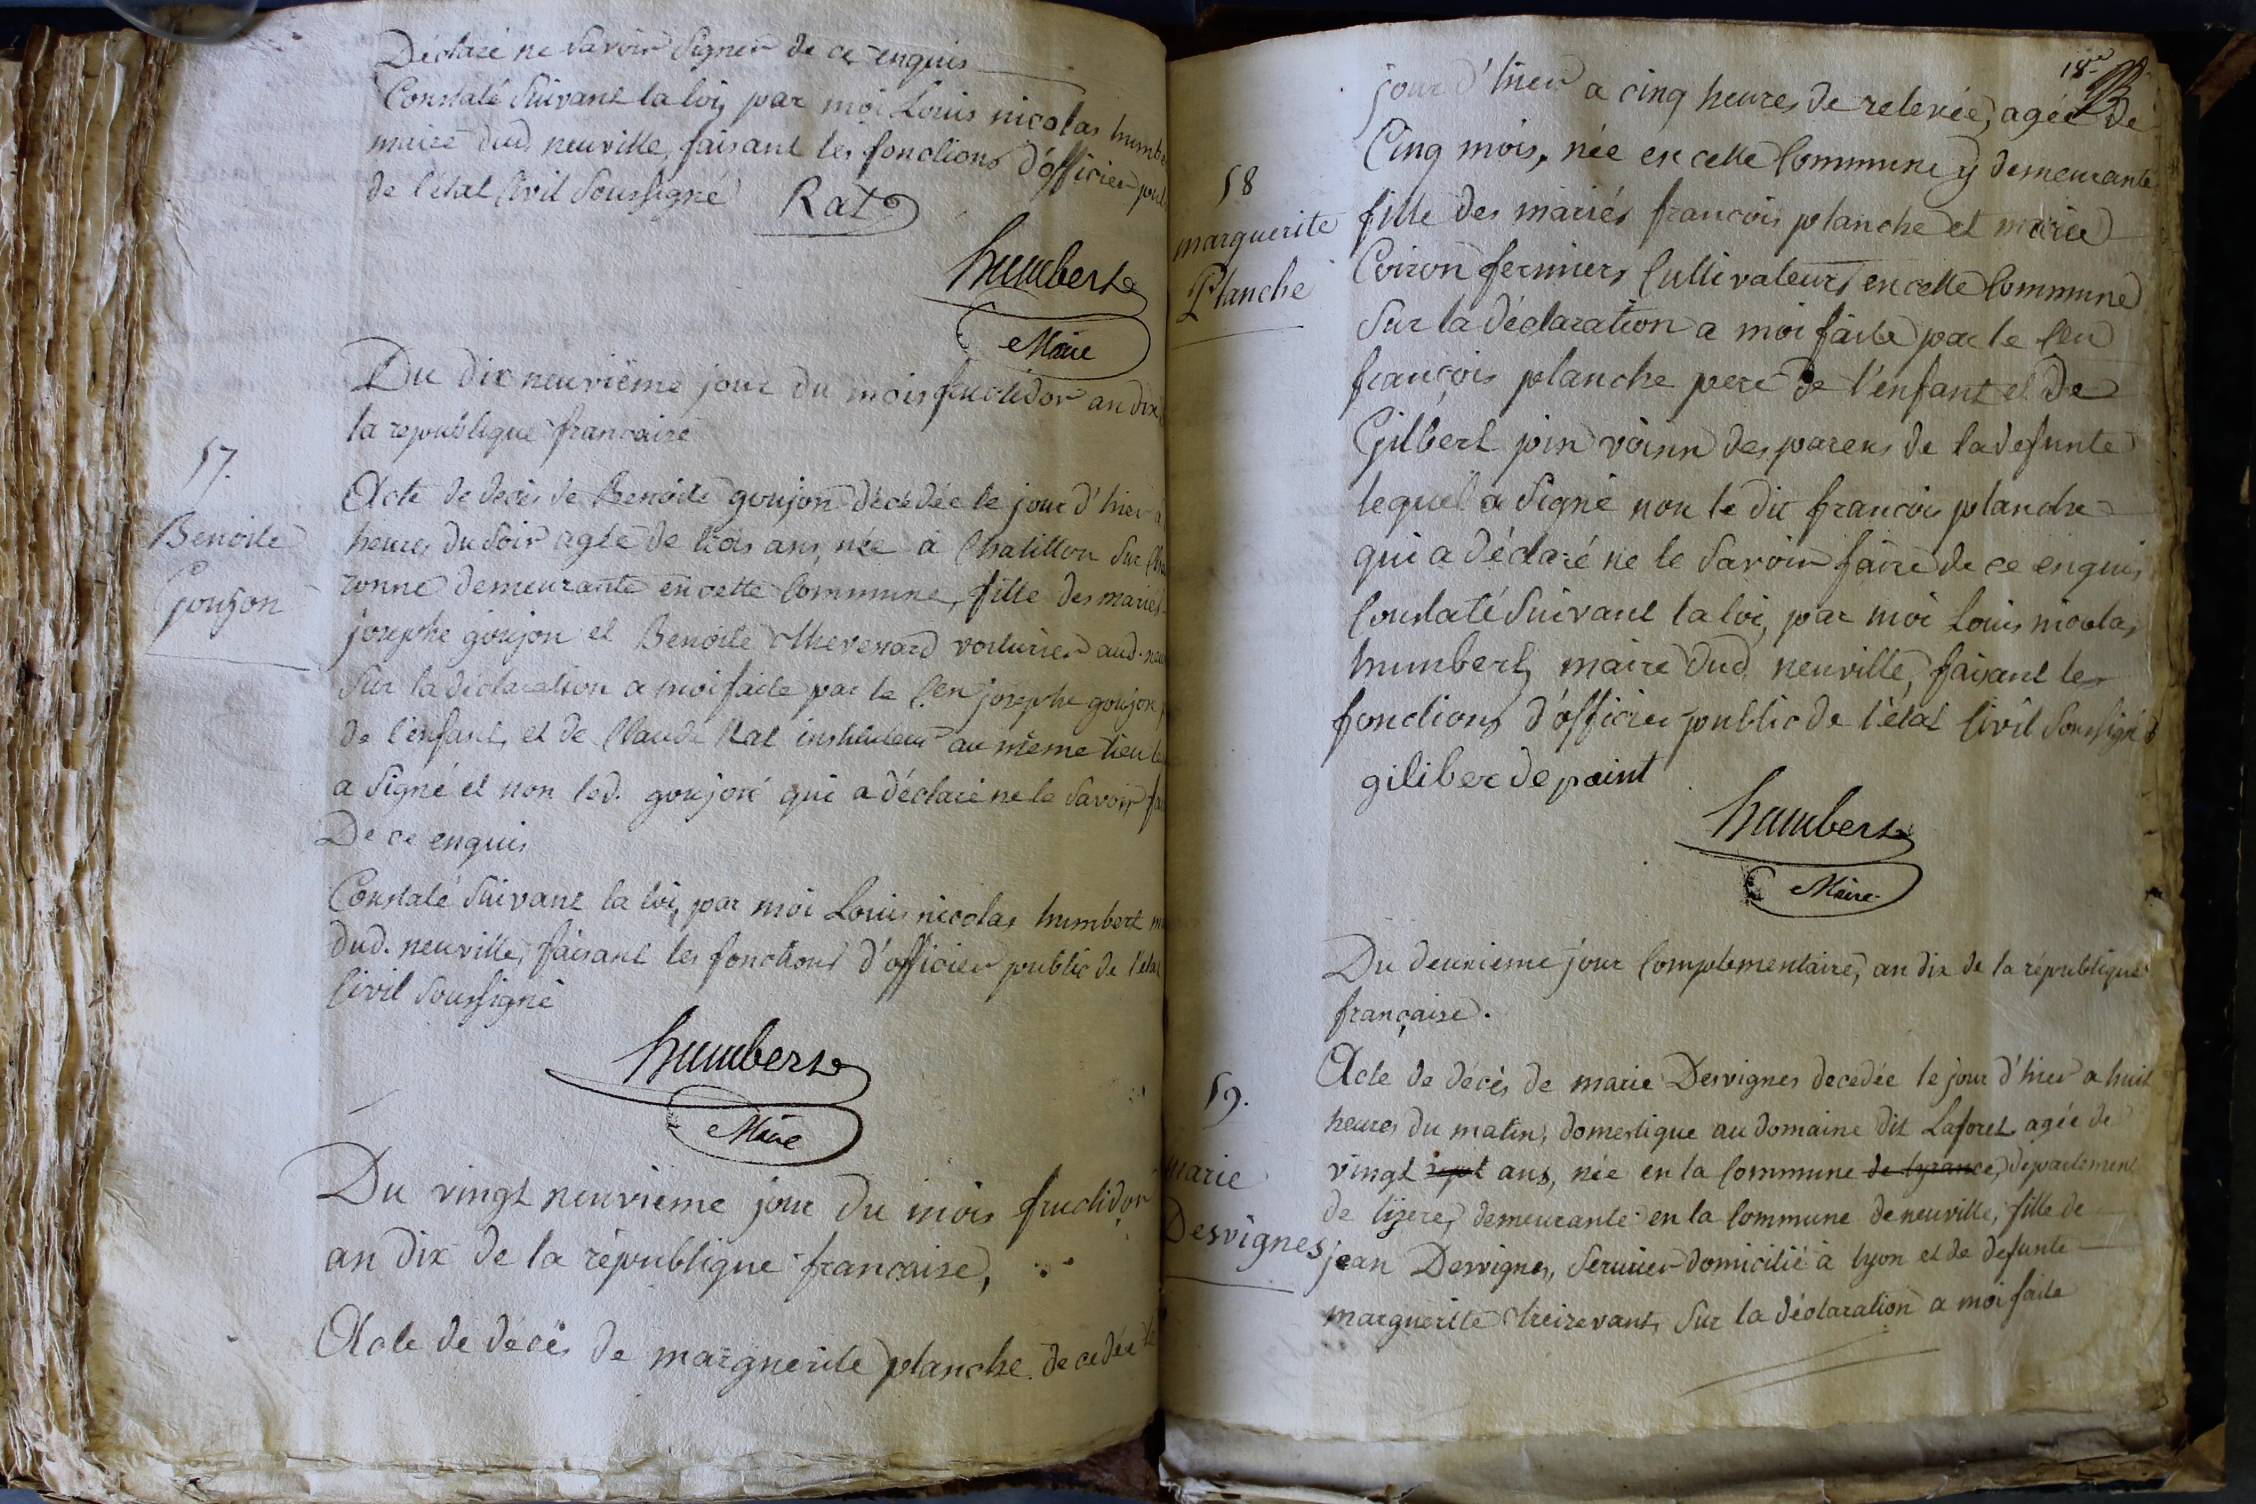 Déclaré ne Savoir Signer de ce enquis
Constaté Suivant la loi, par moi Louis nicolas humbe
maire dud. neuville, faisant les fonctions d'officier publ
de l'état Civil Soussigné Rat
humbert
Maire
Du dix neuviême jour du mois fructidor an dix
la republique francaise
57.
Benoite
Goujon
Acte de decès de Benoite goujon décédée le jour d'hier a
heures du Soir agée de trois ans, née a Chatillon Sur Cha
ronne demeurante en cette Commune, fille des mariés
josephe goujon et Benoite thevenard voiturier aud. neu
Sur la déclaration a moi faite par le Cen josephe goujon p
de l'enfant, et de Claude Rat instituteur au même lieu le
a Signé et non led. goujon qui a déclaré ne le Savoir fa
De ce enquis
Constaté Suivant la loi, par moi Louis nicolas humbert m
dud. neuville, faisant les fonctions d'officier public de l'état
Civil Soussigné
humbert
Maire
Du vingt neuvieme jour du mois fructidor
an dix de la république francaise,
Acte de décès de marguerite planche decedée le
18e
jour d'hier a cinq heures de relevée, agée de
Cinq mois, née en cette Commune y demeurante
58
marguerite
Planche
fille des mariés francois planche et marie
Coiron fermiers Cultivateurs en cette Commune
Sur la déclaration a moi faite par le Cen
françois planche pere de l'enfant et De
Gilbert pin voisin des parens de la defunte
lequel a Signé non le dit francois planche
qui a déclaré ne le Savoir faire de ce enquis
Constaté Suivant la loi, par moi Louis nicolas
humbert, maire dud. neuville, faisant les
fonctions d'officier public de l'état Civil Soussigné
giliber depaint
humbert
Maire
Du deuxieme jour Complementaire, an dix de la république
française.
59.
marie
Desvignes
Acte de décès de marie Desvignes decedée le jour d'hier a huit
heures du matin, domestique au domaine dit Laforet agée de
vingt sept ans, née en la Commune de tyrance, departement
de lizere, demeurante en la Commune de neuville, fille de
jean Desvignes, Serrurier domicilié à lyon et de defunte
marguerite treizevant, Sur la déclaration a moi faite